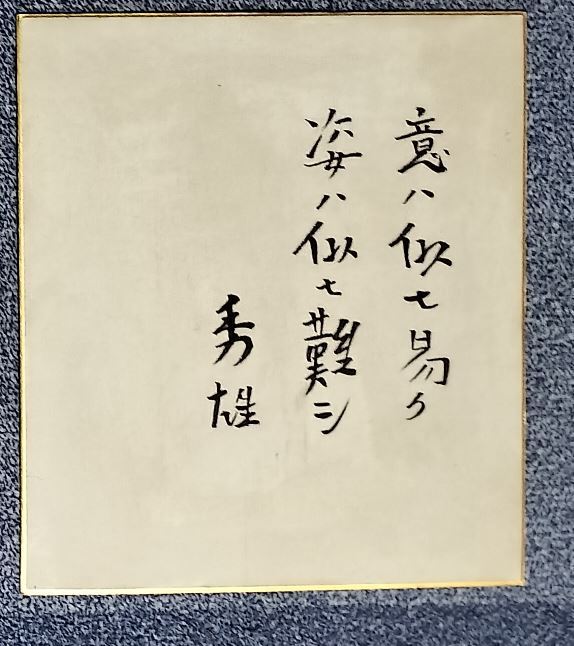 意ハ似セ易ク
姿ハ似セ難シ
秀雄